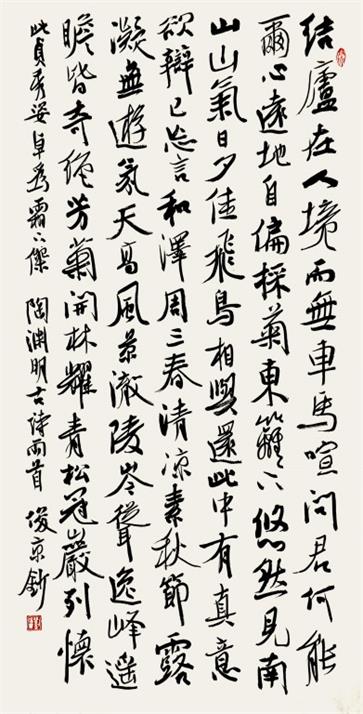 结廬在人境而無車馬喧问君何能
爾心遠地自偏採菊東籬下悠然見南
山山氣日夕佳飛鳥相與還此中有真意
欲辯已忘言和澤周三春清凉素秋節露
凝無遊氛天高風景澈陵岑聳逸峰遥
瞻皆奇绝芳菊開林耀青松冠巖列懷
此貞秀姿卓為霜下傑 陶渊明古诗兩首 俊京鈔